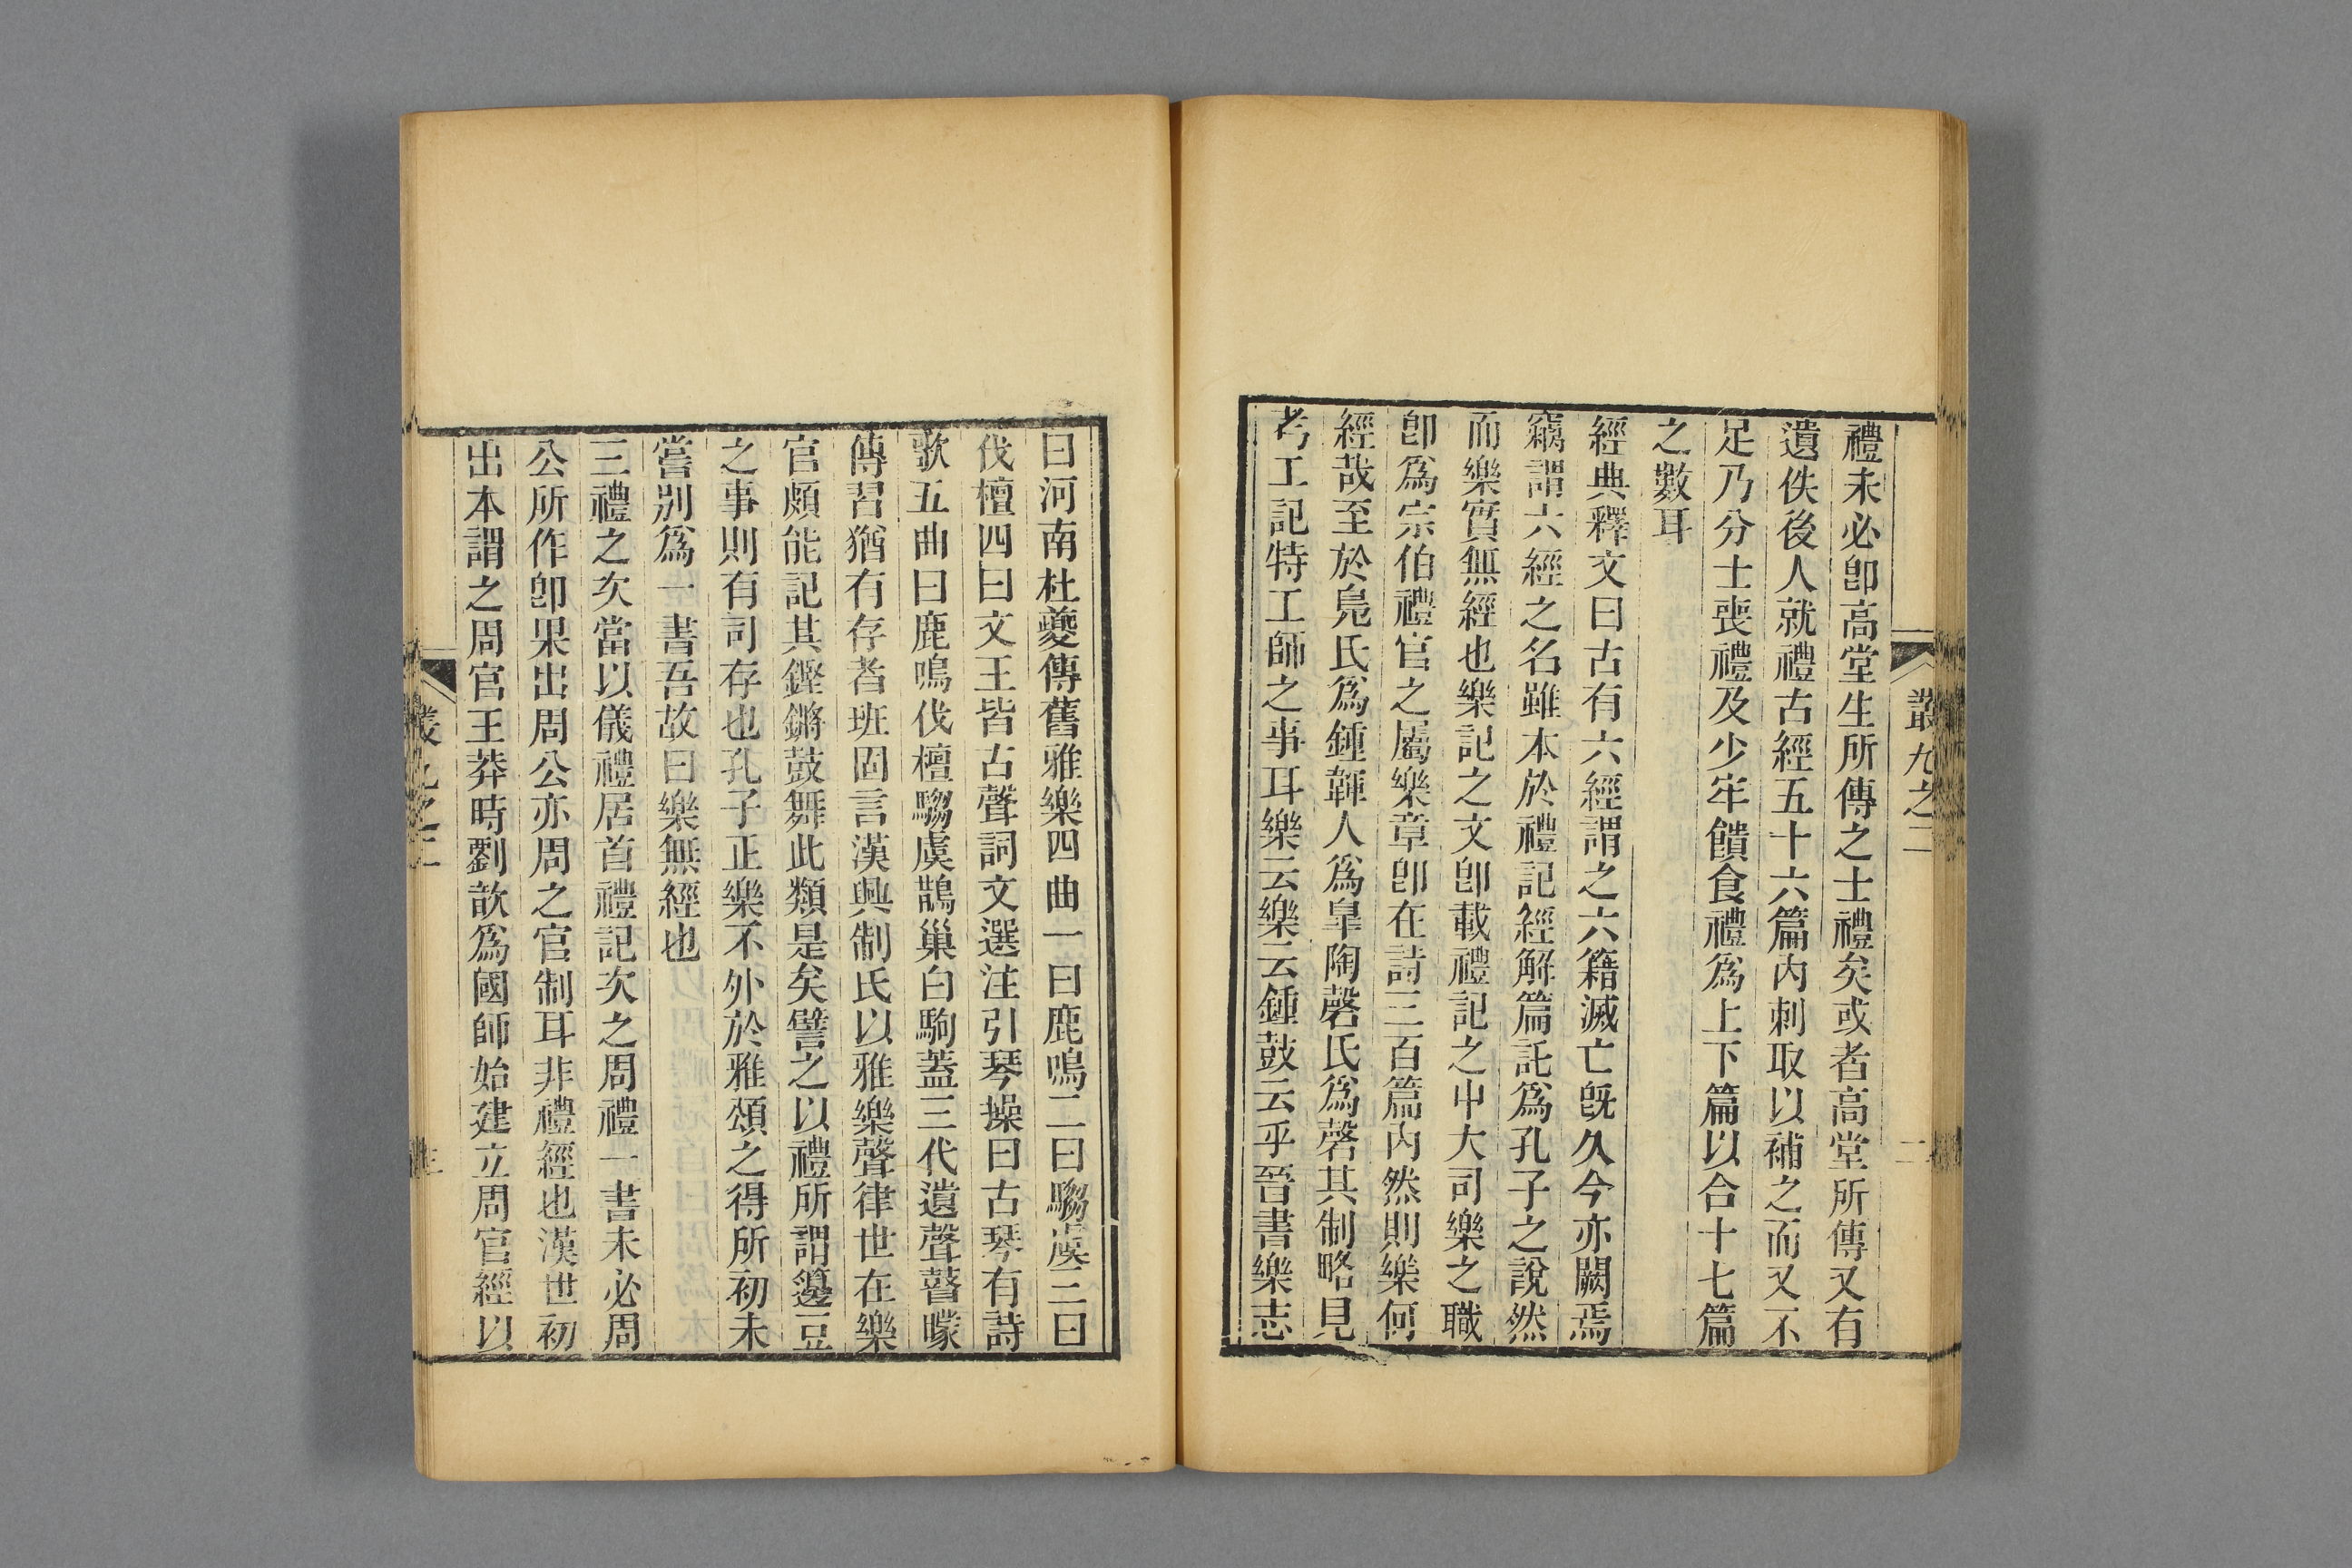 叢九之二
二
禮未必卽高堂生所傳之士禮矣或者高堂所傳又有
遺佚後人就禮古經五十六篇內刺取以補之而又不
足乃分士喪禮及少牢饋食禮爲上下篇以合十七篇
之數耳
經典釋文曰古有六經謂之六籍滅亡旣久今亦闕焉
竊謂六經之名雖本於禮記經解篇託爲孔子之說然
而樂實無經也樂記之文卽載禮記之中大司樂之職
卽爲宗伯禮官之屬樂章卽在詩三百篇內然則樂何
經哉至於鳧氏爲鍾韗人爲皐陶磬氏爲磬其制略見
考工記特工師之事耳樂云樂云鍾鼓云乎晉書樂志
曰河南杜夔傳舊雅樂四曲一曰鹿鳴二曰騶虞三曰
伐檀四曰文王皆古聲詞文選注引琴操曰古琴有詩
歌五曲曰鹿鳴伐檀騶虞鵲巢白駒蓋三代遺聲瞽矇
傳習猶有存者班固言漢興制氏以雅樂聲律世在樂
官頗能記其鏗鏘鼓舞此類是矣譬之以禮所謂籩豆
之事則有司存也孔子正樂不外於雅頌之得所初未
嘗別爲一書吾故曰樂無經也
三禮之次當以儀禮居首禮記次之周禮一書未必周
公所作卽果出周公亦周之官制耳非禮經也漢世初
出本謂之周官王莽時劉歆爲國師始建立周官經以
叢九之二
三